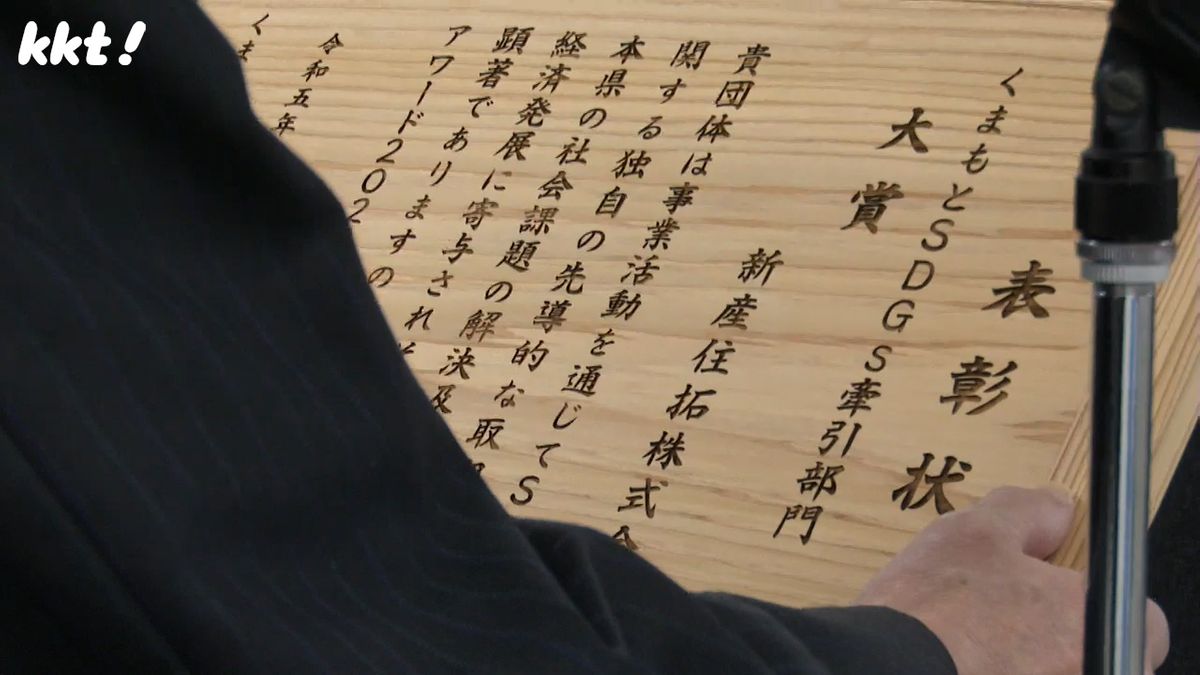 kkt!
表彰状
くまもとSDGS牽引部門
大賞
新産住拓株式会
貴団体は事業活動を通じてS
関する独自の先導的な取
本県の社会課題の解決及
経済発展に寄与され
顕著でありますの
アワード202
令和五年
くま